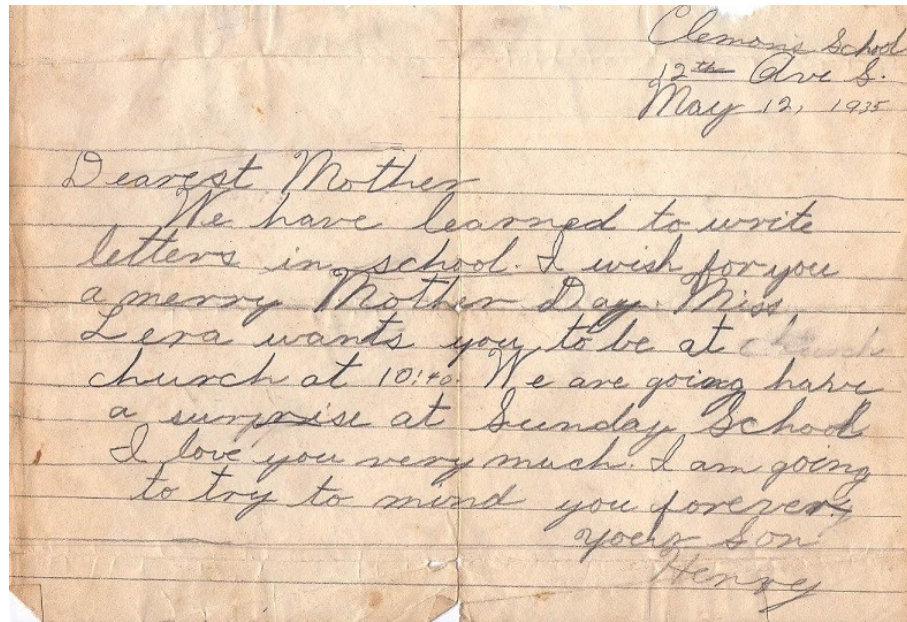 Clemons School
12th Ave S.
May 12, 1935
Dearest Mother
We have learned to write
letters in school. I wish for you
a merry Mother Day. Miss
Lera wants you to be at church
church at 10:40. We are going have
a surprise at Sunday School
I love you very much. I am going
to try to mind you forever.
your son
Henry